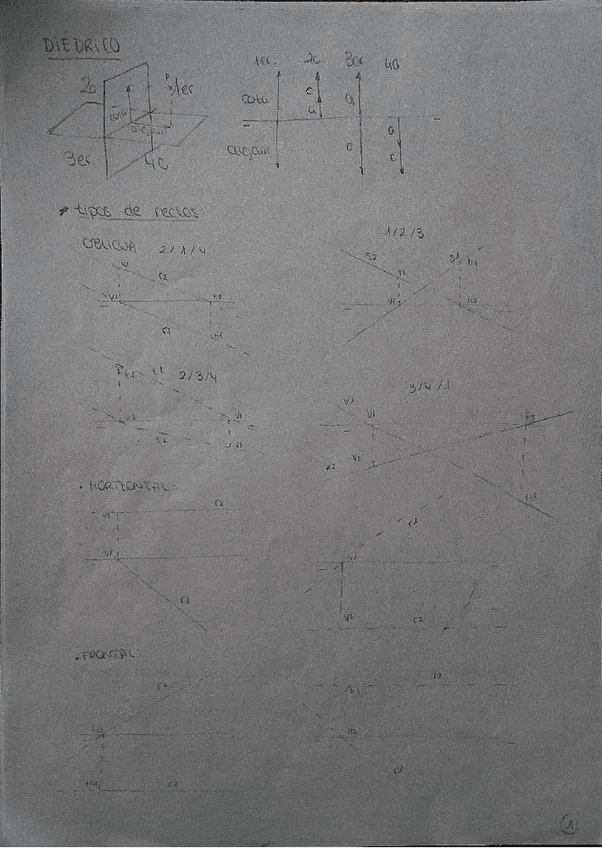 DIÉDRICO
1er. 2c 3er 4c
2c P 1er
cota
alejam.
3er 4c
cota c a a c
alejam. a c
* tipos de rectas:
OBLICUA 2/1/4
1/2/3
V2 r2
V1 H2
r1 H1
s2 V2 s1 H1
V1 H2
2/3/4
H1 r1
H2 V1
3/4/1
r1 V1 H2
r2 V2
H1
· HORIZONTAL:
V2 r2
V1
r1
r1
V1
V2 r2
· FRONTAL:
r2
H2
H1 r1
H1 r1
H2
r2
1